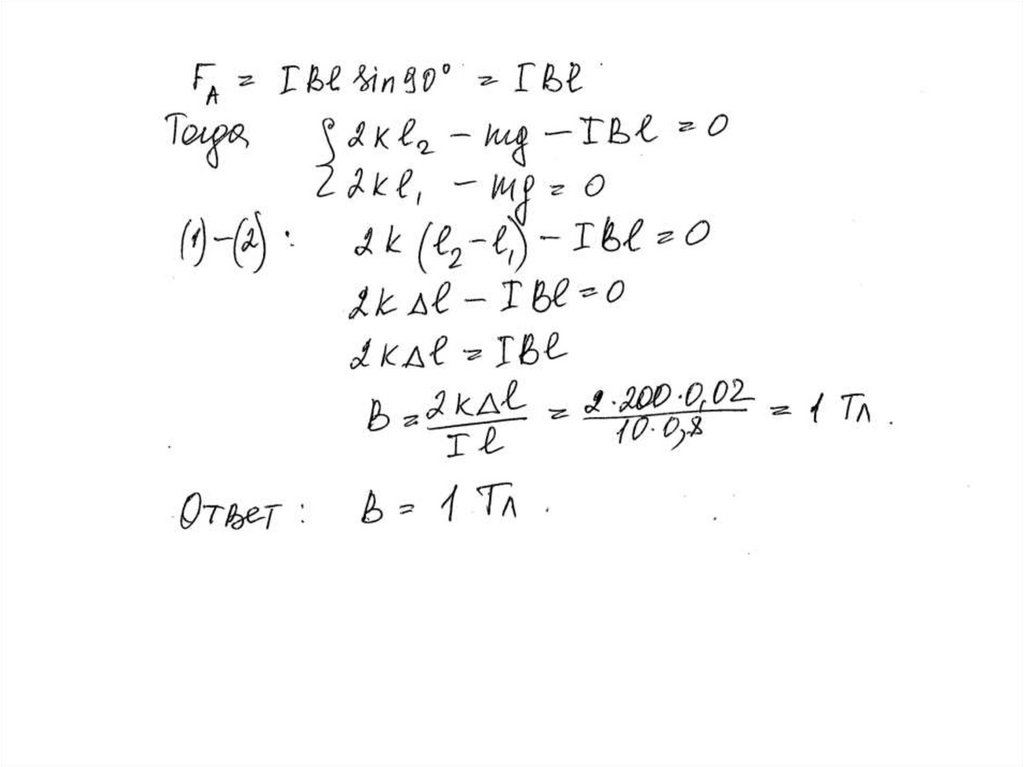 F_A = IBl sin90° = IBl
Тогда { 2kl₂ - mg - IBl = 0
2kl₁ - mg = 0
(1)-(2): 2k(l₂-l₁) - IBl = 0
2kΔl - IBl = 0
2kΔl = IBl
B = 2kΔl / Il = 2·200·0,02 / 10·0,8 = 1 Тл.
Ответ: B = 1 Тл.